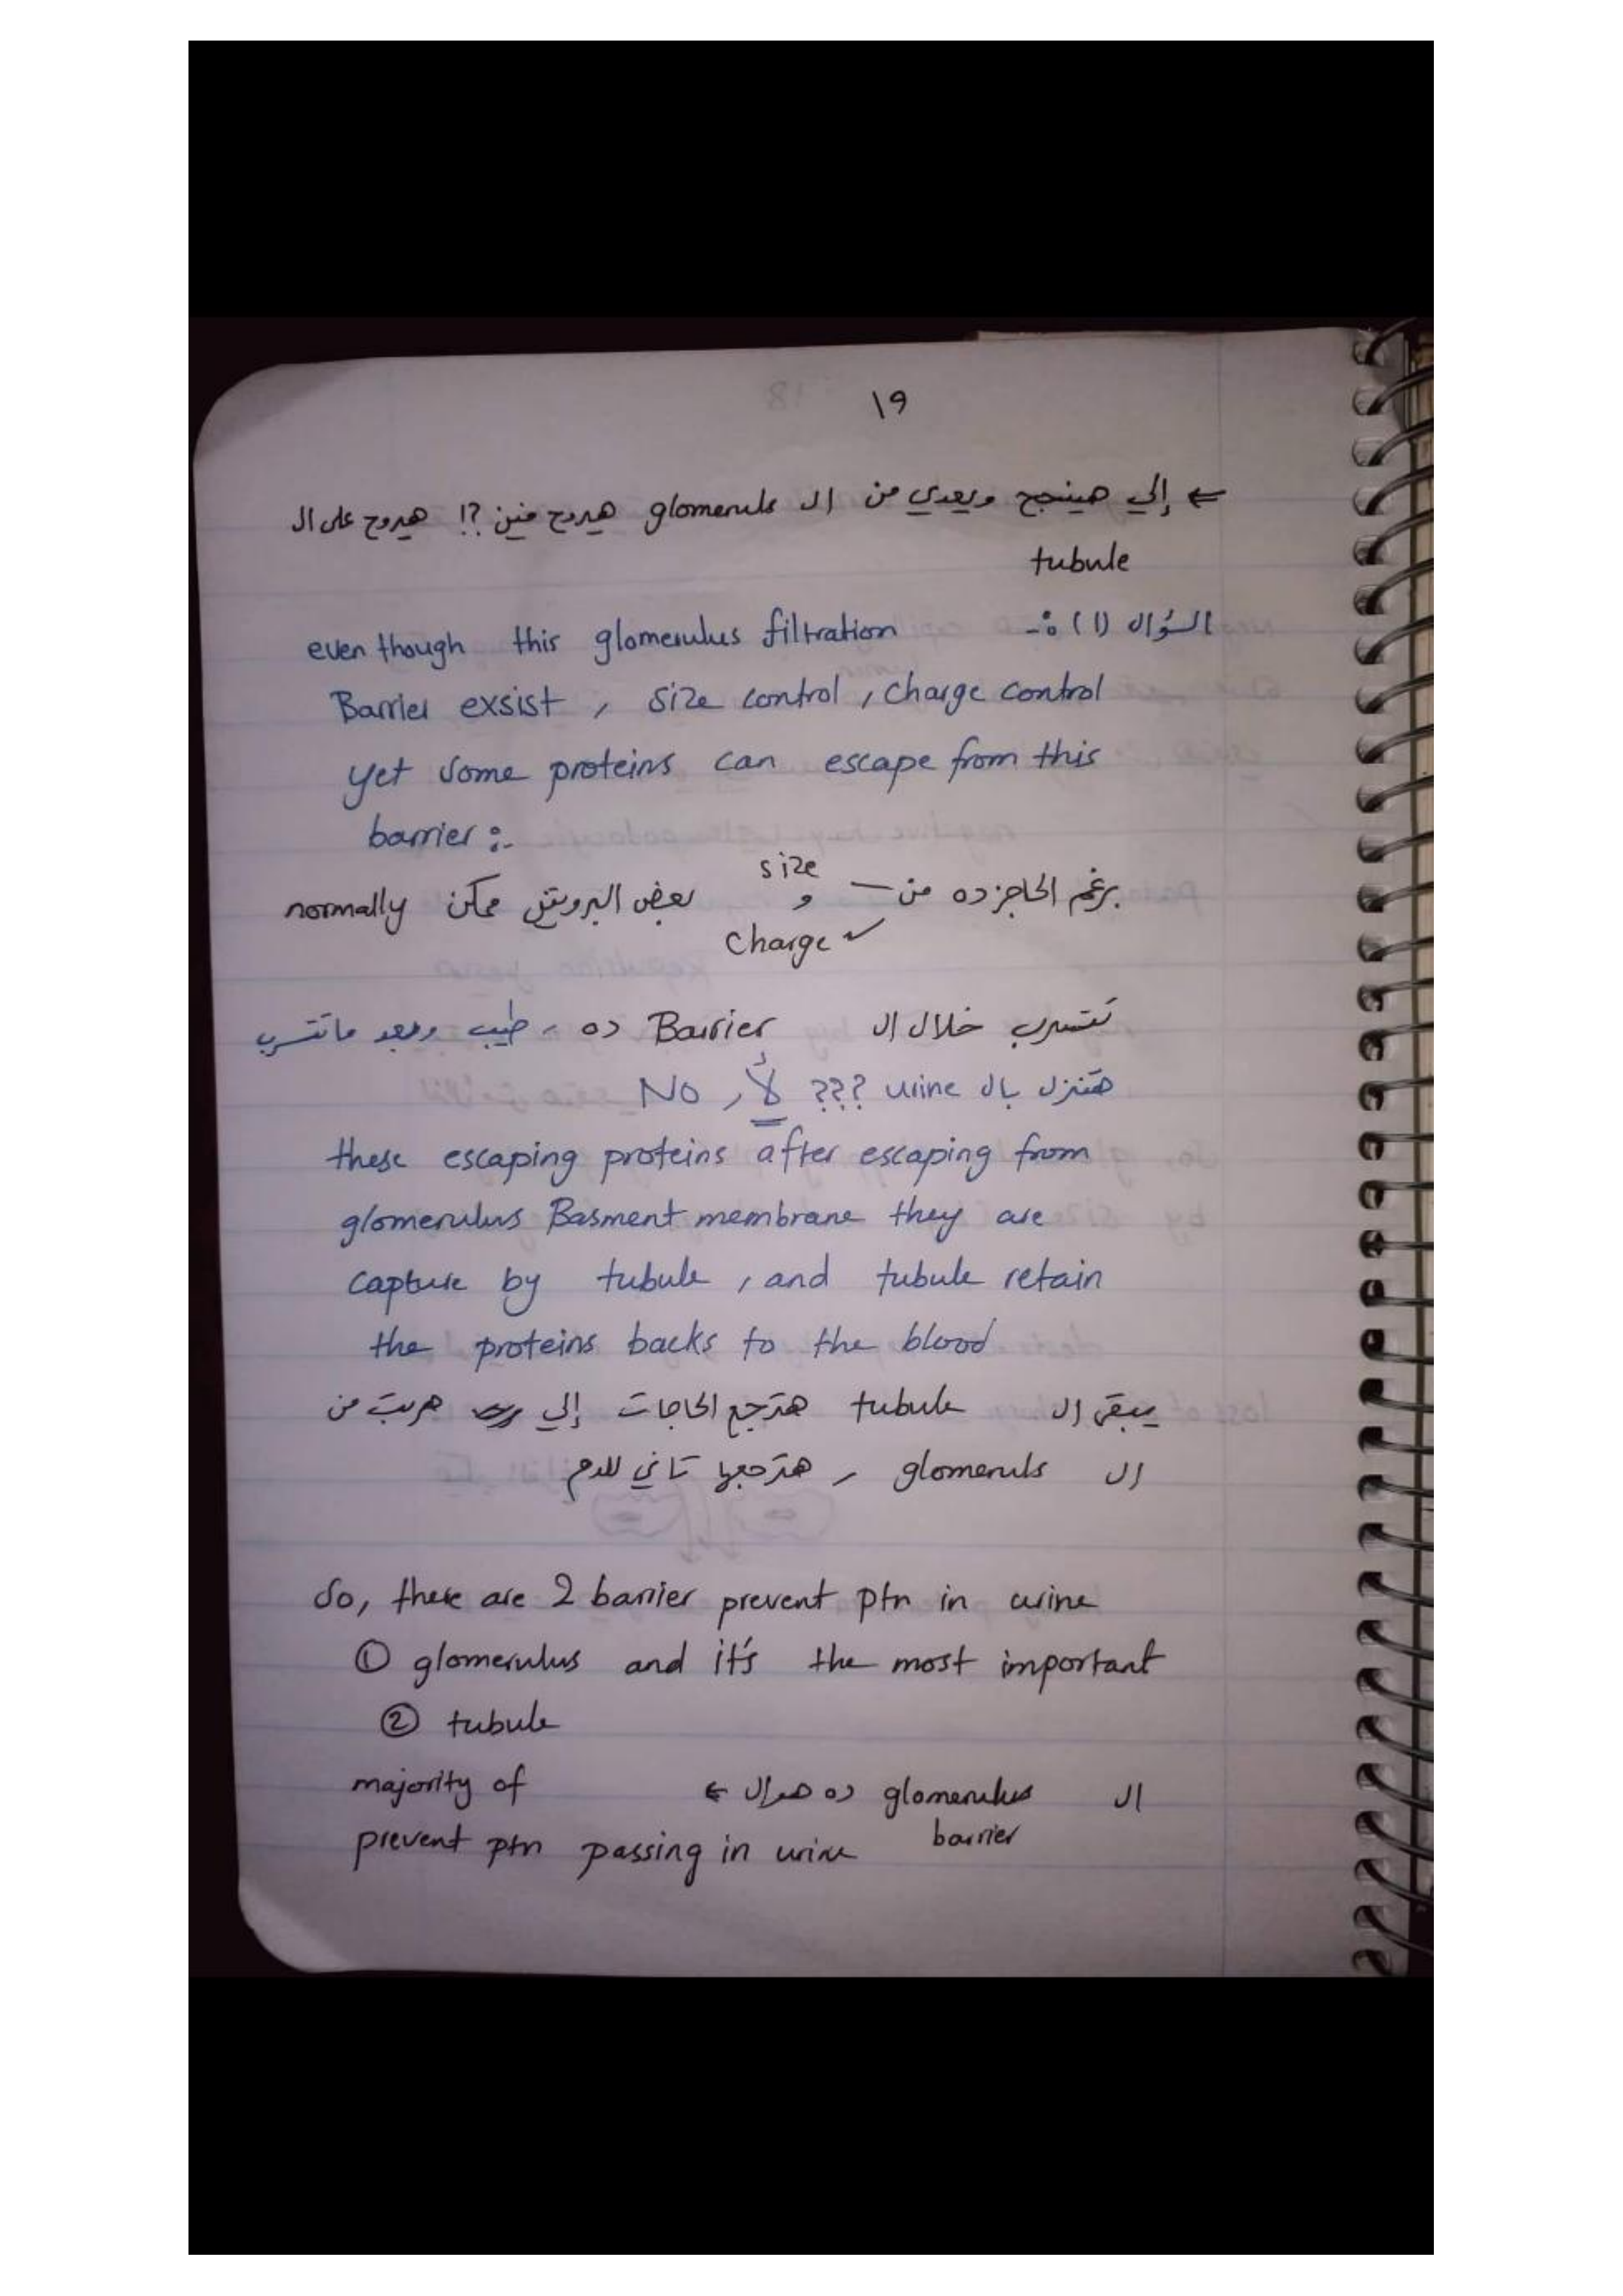 19
← إلي هينجح ويعدي من ال glomeruls هيروح منين ?! هيروح على ال
tubule
السؤال (1) :-
even though this glomerulus filtration
Barrier exsist , size control , charge control
yet some proteins can escape from this
barrier :-
برغم الحاجز ده من size و charge بعض البروتين ممكن normally
تتسرب خلال ال Barrier ده ، طيب وبعد ماتتسرب
هتنزل بال urine ??? لأ , No
these escaping proteins after escaping from
glomerulus Basment membrane they are
capture by tubule , and tubule retain
the proteins backs to the blood
يبقى ال tubule هترجع الحاجات إلي هربت من
ال glomeruls , هترجعها تاني للدم
So, there are 2 barrier prevent ptn in urine
① glomerulus and it's the most important
② tubule
ال glomerulus barrier ده هو ال ← majority of
prevent ptn passing in urine